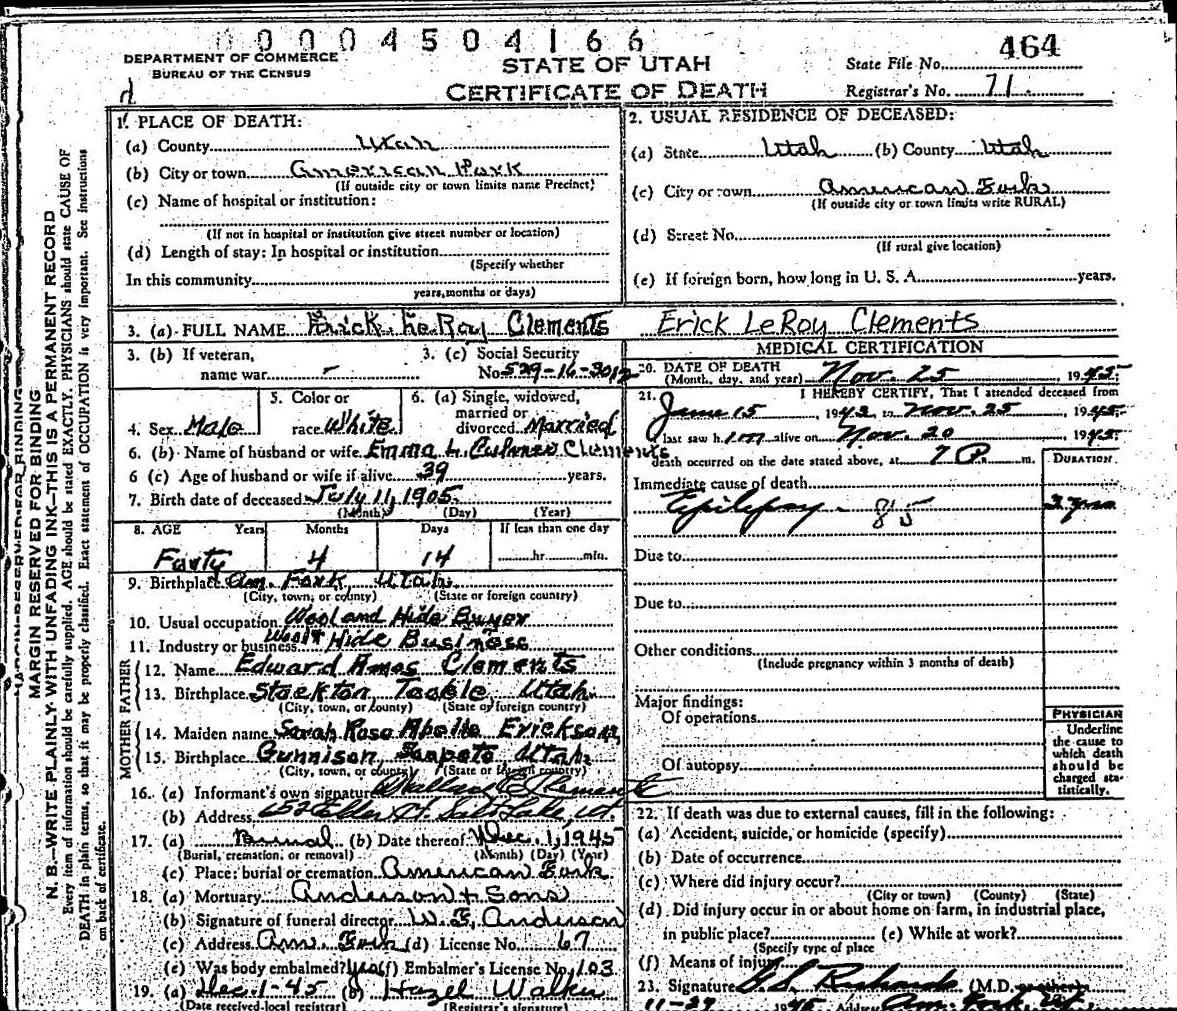 00004504166
DEPARTMENT OF COMMERCE
BUREAU OF THE CENSUS
STATE OF UTAH
CERTIFICATE OF DEATH
State File No. 464
Registrar's No. 71
MARGIN RESERVED FOR BINDING
N. B.—WRITE PLAINLY WITH UNFADING INK—THIS IS A PERMANENT RECORD
Every item of information should be carefully supplied. AGE should be stated EXACTLY. PHYSICIANS should state CAUSE OF
DEATH in plain terms, so that it may be properly classified. Exact statement of OCCUPATION is very important. See instructions
on back of certificate.
1. PLACE OF DEATH:
(a) County Utah
(b) City or town American Fork
(If outside city or town limits name Precinct)
(c) Name of hospital or institution:
(If not in hospital or institution give street number or location)
(d) Length of stay: In hospital or institution
(Specify whether
In this community
years, months or days)
2. USUAL RESIDENCE OF DECEASED:
(a) State Utah (b) County Utah
(c) City or town American Fork
(If outside city or town limits write RURAL)
(d) Street No.
(If rural give location)
(e) If foreign born, how long in U. S. A. years.
3. (a) FULL NAME Erick LeRoy Clements Erick LeRoy Clements
3. (b) If veteran,
name war -
3. (c) Social Security
No. 529-16-3012
4. Sex Male
5. Color or
race White
6. (a) Single, widowed,
married or
divorced Married
6. (b) Name of husband or wife Emma L. Clements
6 (c) Age of husband or wife if alive 39 years.
7. Birth date of deceased July 11, 1905
(Month) (Day) (Year)
8. AGE Years Months Days If less than one day
Forty 4 14 hr. min.
9. Birthplace Am. Fork Utah
(City, town, or county) (State or foreign country)
10. Usual occupation Wool and Hide Buyer
11. Industry or business Wool & Hide Business
FATHER
12. Name Edward Amos Clements
13. Birthplace Stockton Tooele Utah
(City, town, or county) (State or foreign country)
MOTHER
14. Maiden name Sarah Rose Abelle Erickson
15. Birthplace Gunnison, Sanpete Utah
(City, town, or county) (State or foreign country)
16. (a) Informant's own signature Wallace Clements
(b) Address Salt Lake, Ut.
17. (a) Burial (b) Date thereof Dec. 1, 1945
(Burial, cremation, or removal) (Month) (Day) (Year)
(c) Place: burial or cremation American Fork
18. (a) Mortuary Anderson & Sons
(b) Signature of funeral director W. E. Anderson
(c) Address Am. Fork (d) License No. 67
(e) Was body embalmed? Yes (f) Embalmer's License No. 103
19. (a) Dec. 1-45 (b) Hazel Walker
(Date received local registrar) (Registrar's signature)
MEDICAL CERTIFICATION
20. DATE OF DEATH
(Month, day, and year) Nov. 25, 1945
21. I HEREBY CERTIFY, That I attended deceased from
June 15, 1942 to Nov. 25, 1945
I last saw him alive on Nov. 20 1945
death occurred on the date stated above, at 7 P. m.
DURATION
Immediate cause of death
Epilepsy - 85 3 yrs
Due to
Due to
Other conditions
(Include pregnancy within 3 months of death)
Major findings:
Of operations
Of autopsy
PHYSICIAN
Underline
the cause to
which death
should be
charged sta-
tistically.
22. If death was due to external causes, fill in the following:
(a) Accident, suicide, or homicide (specify)
(b) Date of occurrence
(c) Where did injury occur?
(City or town) (County) (State)
(d) Did injury occur in or about home on farm, in industrial place,
in public place? (e) While at work?
(Specify type of place
(f) Means of injury
23. Signature Richards (M.D. or other)
11-27 1945 Address Am. Fork, Ut.